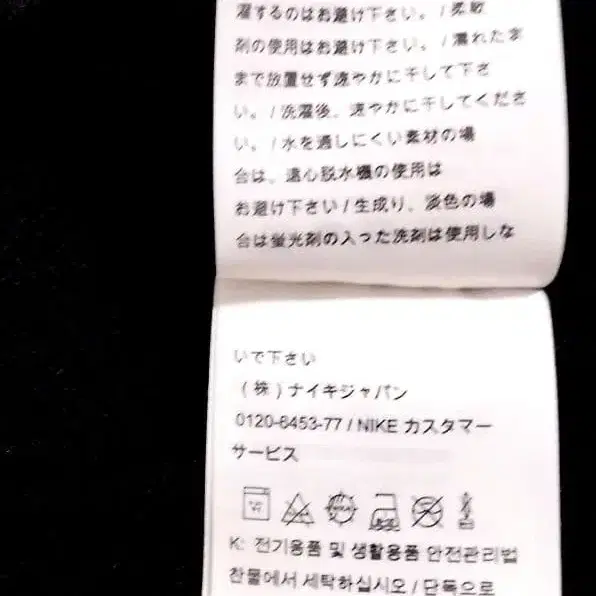 濯するのはお避け下さい。/ 柔軟
剤の使用はお避け下さい。/ 濡れたま
まで放置せず速やかに干して下さ
い。/ 洗濯後、速やかに干してくださ
い。/ 水を通しにくい素材の場
合は、遠心脱水機の使用は
お避け下さい / 生成り、淡色の場
合は蛍光剤の入った洗剤は使用しな
いで下さい
(株)ナイキジャパン
0120-6453-77 / NIKE カスタマー
サービス
K: 전기용품 및 생활용품 안전관리법
찬물에서 세탁하십시오 / 단독으로